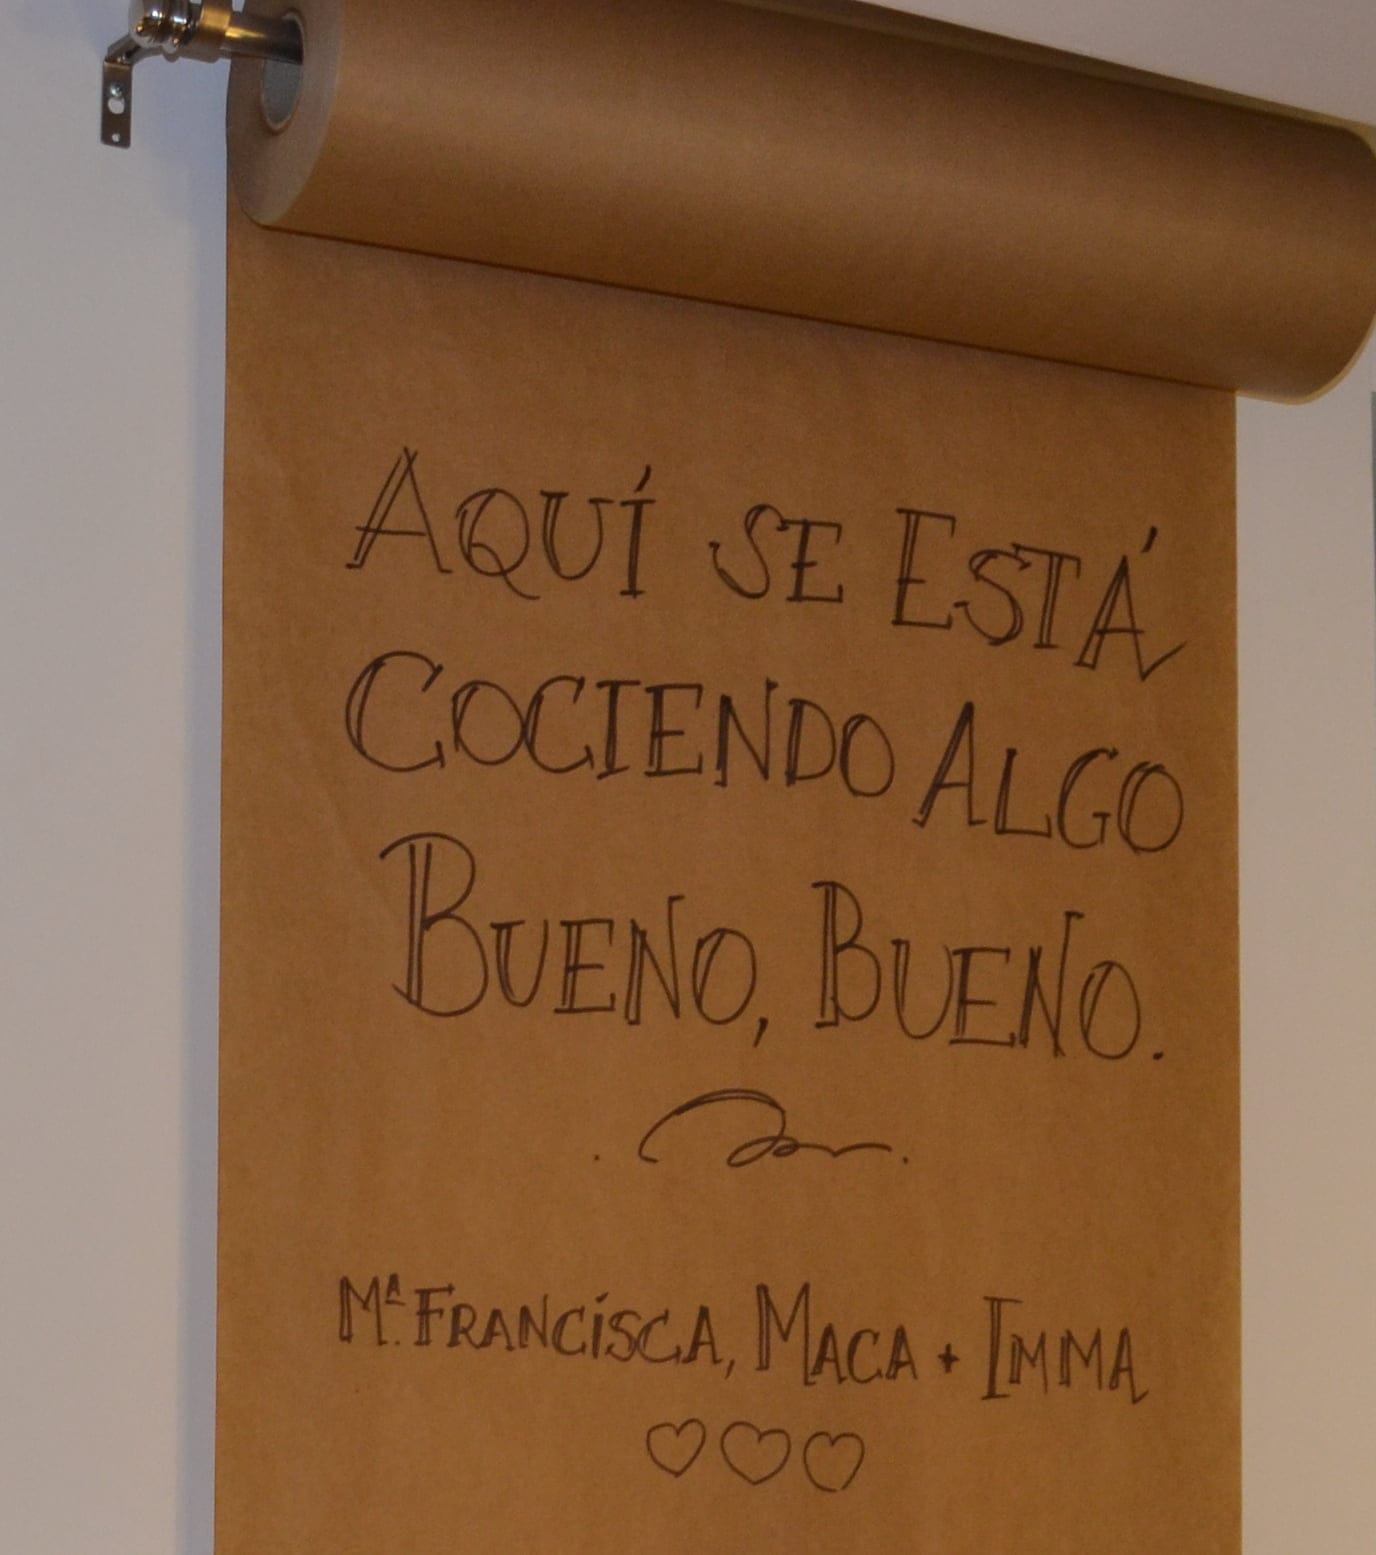 AQUÍ SE ESTÁ
COCIENDO ALGO
BUENO, BUENO.
Mª. FRANCISCA, MACA + IMMA